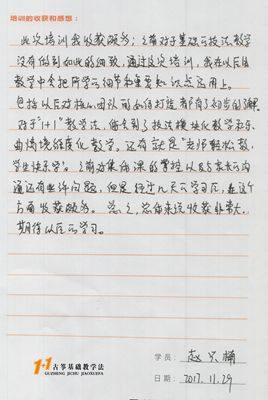 培训的收获和感想：
此次培训我收获颇多；之前对于基础云技法教学
没有做到如此的细致，通过这次培训，我在以后
教学中会把所学云细节和重要知识点运用上。
包括以后对核心团队如何打造都有了初步的了解。
对于"1+1"教学法，做到了技法模块化教学和乐
曲情境维度化教学。还有就是"老师轻松教，
学生快乐学"。之前对集体课的掌控以及与家长云沟
通还有些许问题，但是经过几天云学习后，在这个
方面收获颇多。总之，总体来说收获非常大，
期待以后云学习。
1+1 古筝基础教学法
GUZHENG JICHU JIAOXUEFA
学员：赵
日期：2017.11.29